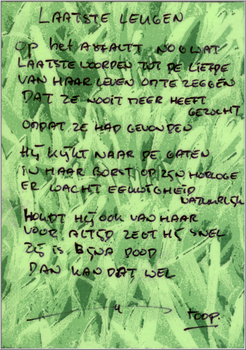 LAATSTE LEUGEN
OP het ASFALT NOG WAT
LAATSTE WOORDEN TOT DE LIEFDE
VAN HAAR LEVEN OM TE ZEGGEN
DAT ZE NOOIT MEER HEEFT
GEZOCHT
OMDAT ZE HAD GEVONDEN
HIJ KIJKT NAAR DE GATEN
IN HAAR BORST OP ZIJN HORLOGE
ER WACHT EEUWIGHEID
NATUURLIJK
HOUDT HIJ OOK VAN HAAR
VOOR ALTIJD ZEGT HIJ SNEL
ZIJ IS BIJNA DOOD
DAN KAN DAT WEL